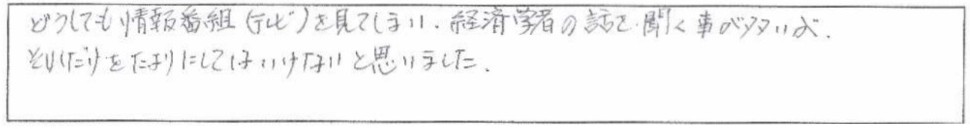 どうしても情報番組(テレビ)を見てしまい、経済学者の話を聞く事が多いが、
それだけをたよりにしてはいけないと思いました。